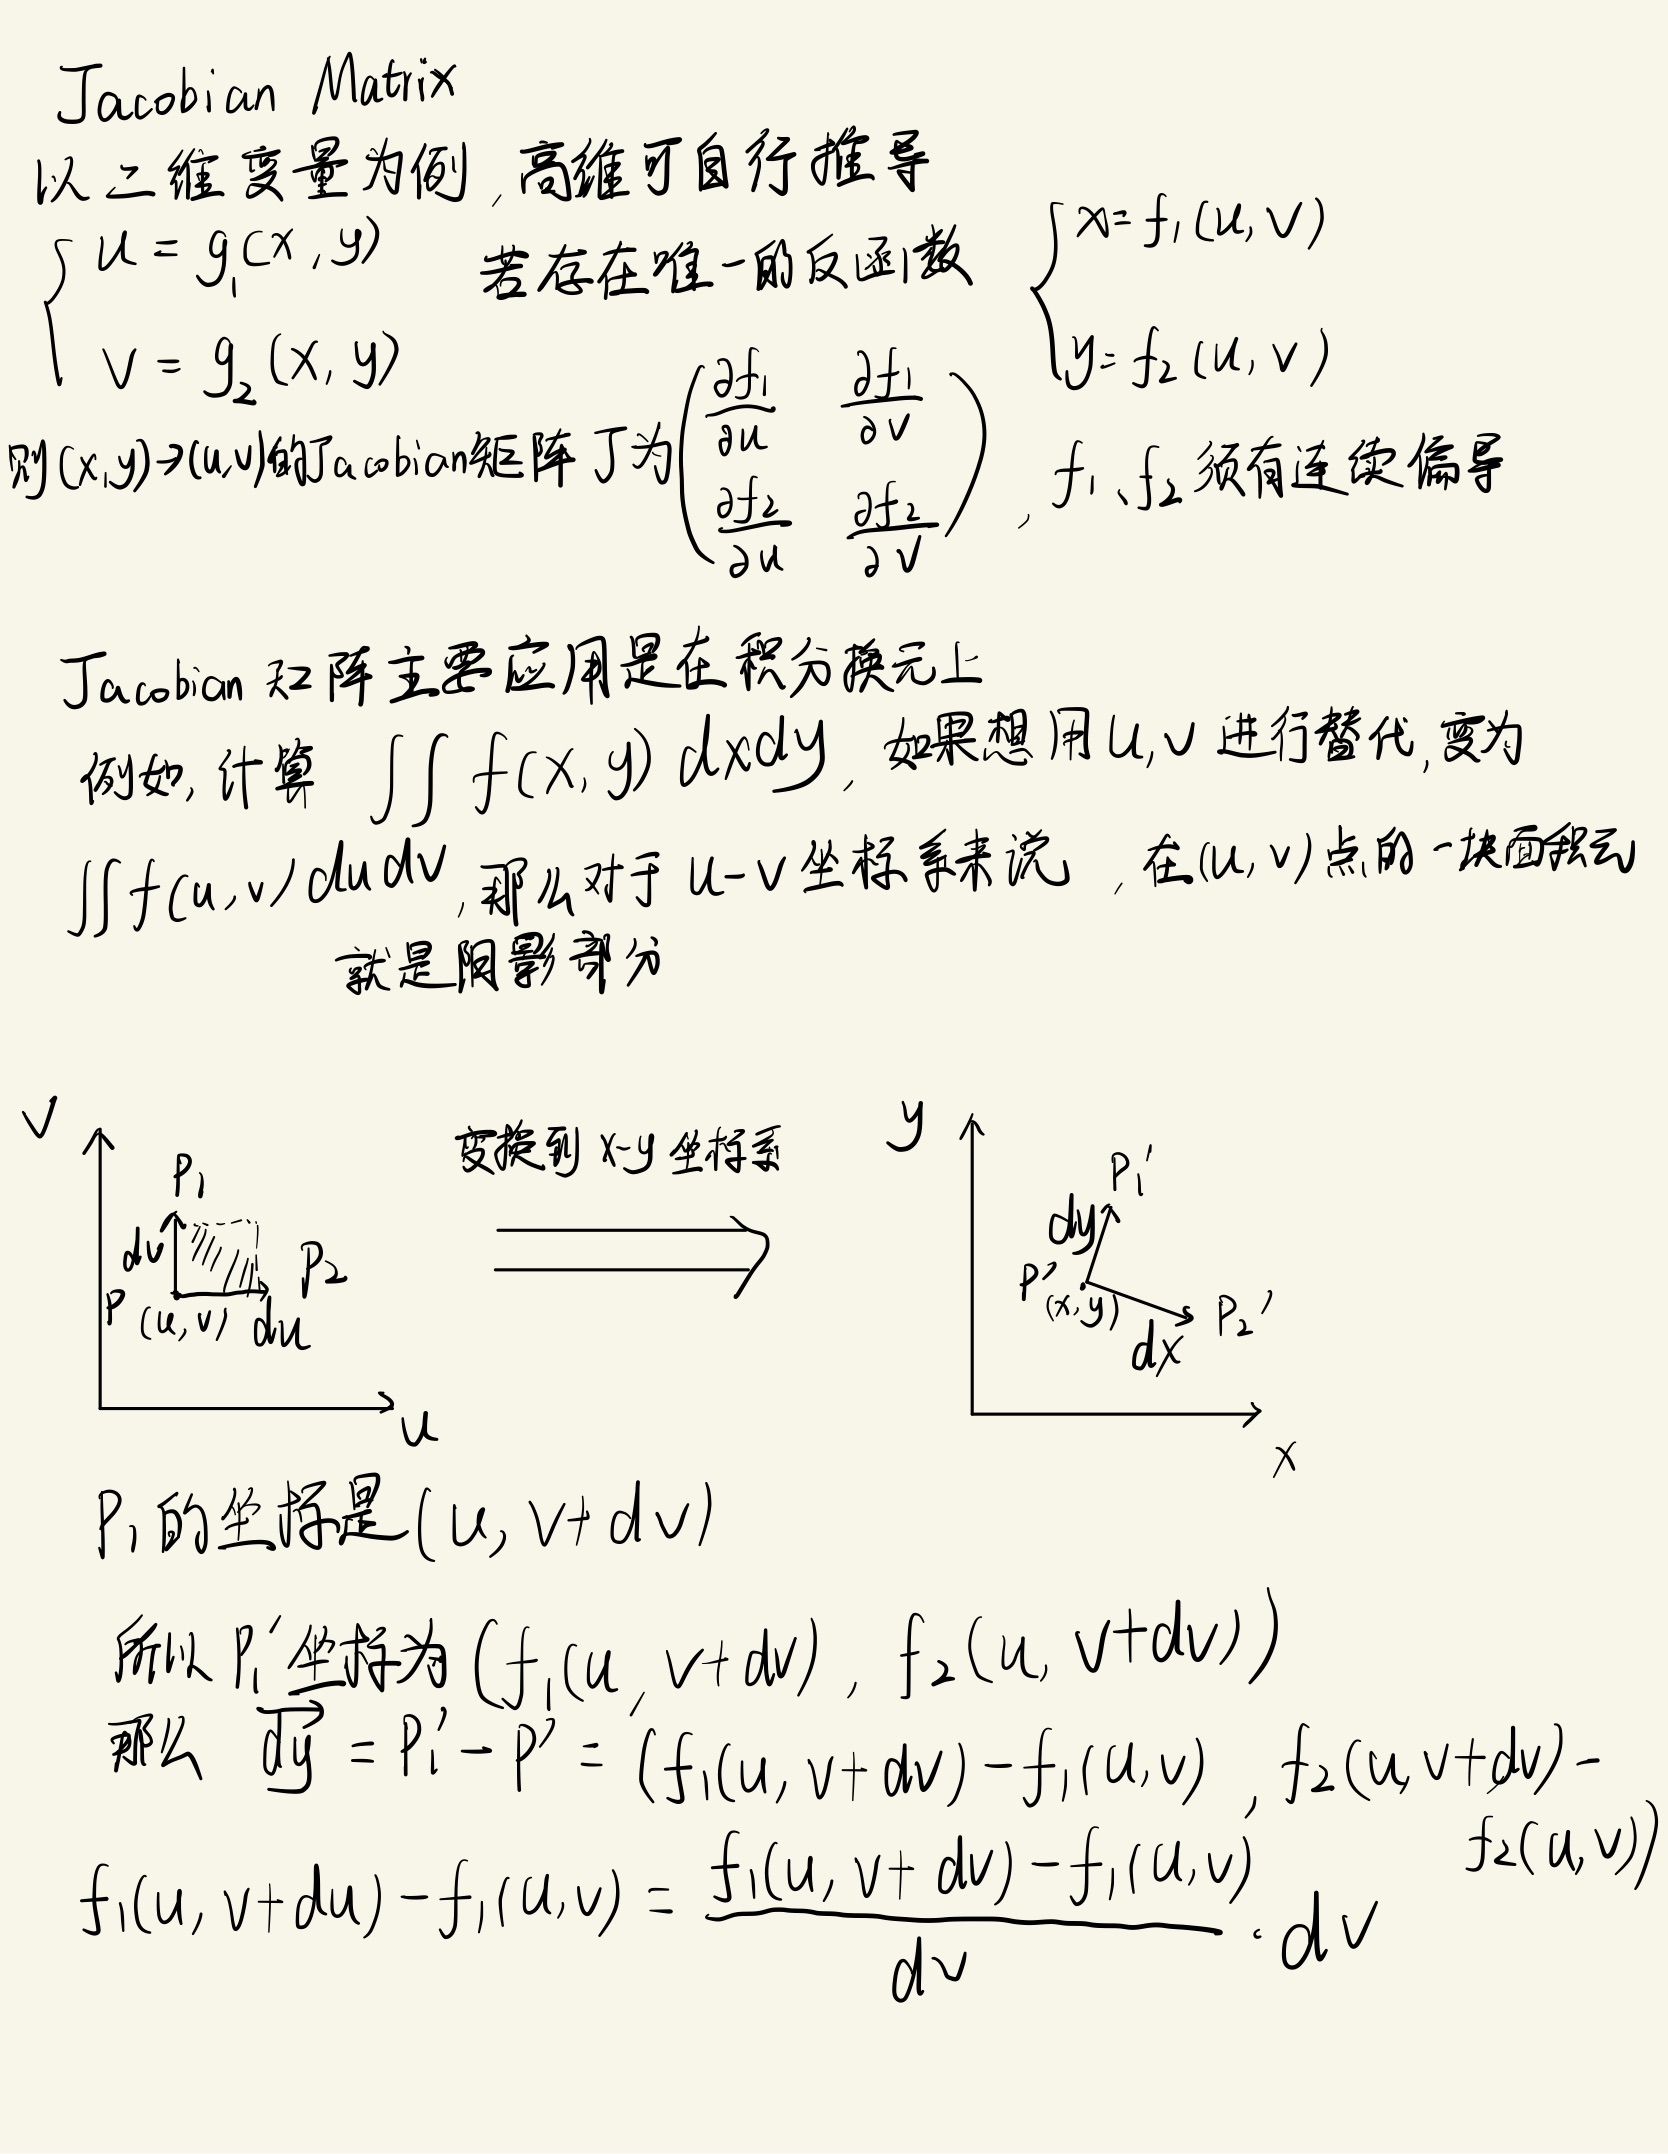 Jacobian Matrix
以二维变量为例,高维可自行推导
{ u = g₁(x, y)
v = g₂(x, y)
若存在唯一的反函数
{ x = f₁(u, v)
y = f₂(u, v)
则(x,y)→(u,v)的Jacobian矩阵 J为 ( ∂f₁/∂u ∂f₁/∂v
∂f₂/∂u ∂f₂/∂v ) , f₁、f₂ 须有连续偏导
Jacobian 矩阵主要应用是在积分换元上
例如, 计算 ∫∫ f(x, y) dxdy, 如果想用 u,v 进行替代, 变为
∫∫ f(u, v) du dv, 那么对于 u-v 坐标系来说, 在(u, v)点的一块面积元
就是阴影部分
v
P₁
dv
P₂
P
(u, v)
du
u
变换到 x-y 坐标系
y
P₁′
dy
P′
(x, y)
P₂′
dx
x
P₁的坐标是(u, v+dv)
所以 P₁′坐标为 (f₁(u, v+dv), f₂(u, v+dv))
那么 \overrightarrow{dy} = P₁′ - P′ = (f₁(u, v+dv) - f₁(u,v), f₂(u, v+dv) -
f₂(u, v))
f₁(u, v+du) - f₁(u, v) = \frac{f₁(u, v+dv) - f₁(u,v)}{dv} · dv